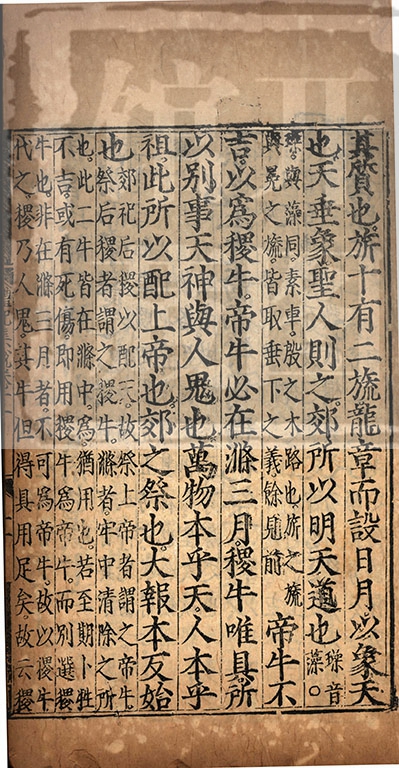 其質也。旂十有二旒龍章而設日月以象天
也天垂象聖人則之。郊所以明天道也璪音
藻。
璪。與藻同素車。殷之木路也。旂之旒
與冕之旒皆取垂下之義餘見前
帝牛不
吉。以爲稷牛。帝牛必在滌三月稷牛唯具所
以別事天神與人鬼也萬物本乎天。人本乎
祖。此所以配上帝也郊之祭也。大報本反始
也郊祀后稷以配天。故祭上帝者謂之帝牛。
祭后稷者謂之稷牛。滌者牢中清除之所
也。此二牛皆在滌中。爲猶用也。若至期卜牲
不吉。或有死傷。即用稷牛爲帝牛。而別選稷
牛也非在滌三月者。不可爲帝牛。故以稷牛
代之稷乃人鬼。其牛但得具用足矣。故云稷